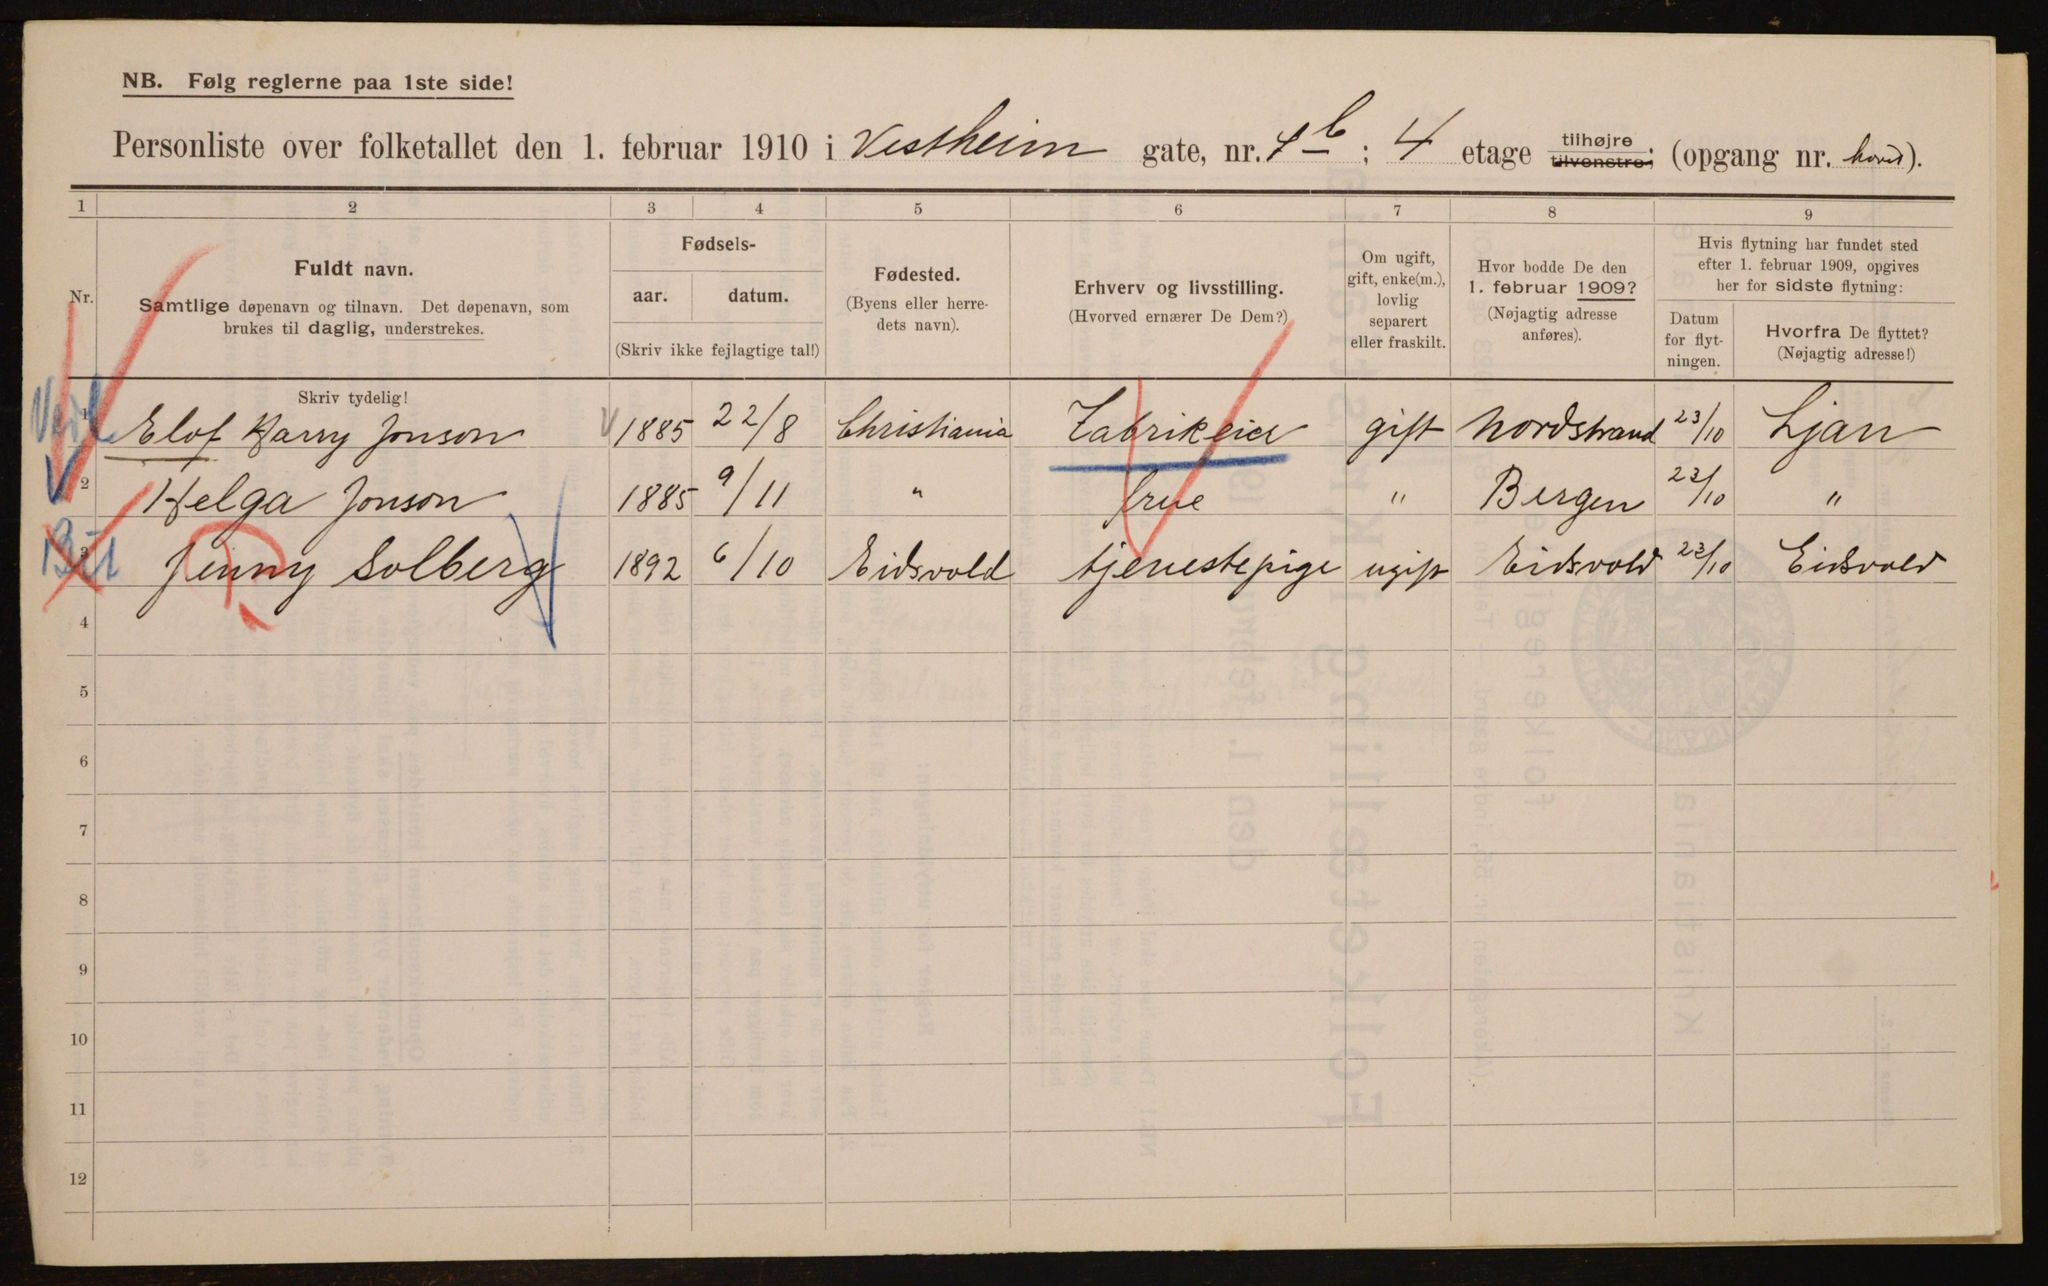 NB. Følg reglerne paa 1ste side!
Personliste over folketallet den 1. februar 1910 i Vestheim gate, nr. 1b; 4 etage tilhøjre tilvenstre; (opgang nr. hoved).
1 2 3 4 5 6 7 8 9
Nr.
Fuldt navn.
Samtlige døpenavn og tilnavn. Det døpenavn, som
brukes til daglig, understrekes.
Fødsels-
aar. datum.
(Skriv ikke fejlagtige tal!)
Fødested.
(Byens eller herre-
dets navn).
Erhverv og livsstilling.
(Hvorved ernærer De Dem?)
Om ugift,
gift, enke(m.),
lovlig
separert
eller fraskilt.
Hvor bodde De den
1. februar 1909?
(Nøjagtig adresse
anføres).
Hvis flytning har fundet sted
efter 1. februar 1909, opgives
her for sidste flytning:
Datum
for flyt-
ningen.
Hvorfra De flyttet?
(Nøjagtig adresse!)
Skriv tydelig!
1 Elof Harry Jonson 1885 22/8 Christiania Fabrikeier gift Nordstrand 23/10 Ljan
2 Helga Jonson 1885 9/11 " frue " Bergen 23/10 "
3 Jenny Solberg 1892 6/10 Eidsvold tjenestepige ugift Eidsvold 23/10 Eidsvold
4
5
6
7
8
9
10
11
12